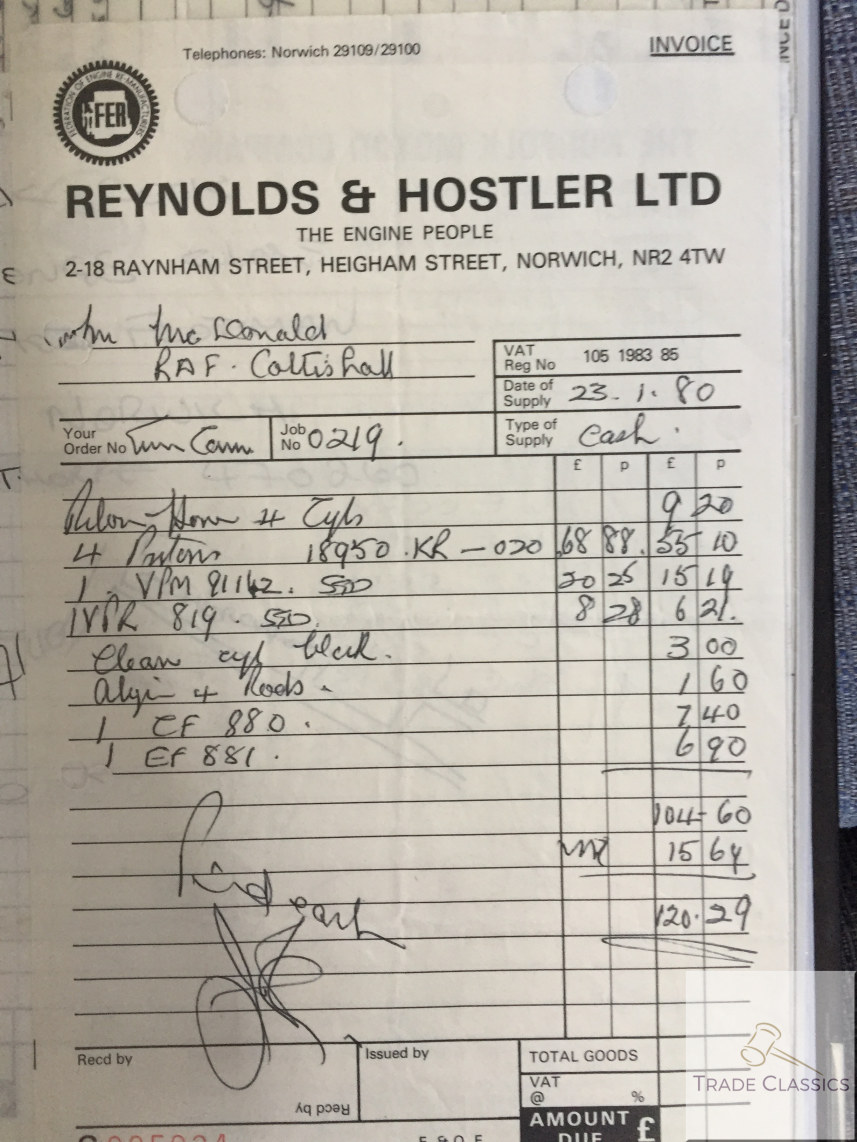 Telephones: Norwich 29109/29100
INVOICE
FEDERATION OF ENGINE RE-MANUFACTURERS
FER
REYNOLDS & HOSTLER LTD
THE ENGINE PEOPLE
2-18 RAYNHAM STREET, HEIGHAM STREET, NORWICH, NR2 4TW
McDonald
RAF. Coltishall
VAT Reg No 105 1983 85
Date of Supply 23.1.80
Your Order No
Job No 0219.
Type of Supply Cash.
£ p £ p
Hone 4 Cyls 9 20
4 Pistons 18950.KR-020 68 88. 55 10
1. VPM 91142. 20 25 15 19
1 VPR 819. 8 28 6 21.
Clean cyl block. 3 00
Align 4 Rods. 1 60
1 EF 880. 7 40
1 EF 881. 6 90
104-60
15 64
120.29
cash
Recd by
Issued by
TOTAL GOODS
VAT @ %
Recd by
AMOUNT DUE £
E & O E
TRADE CLASSICS